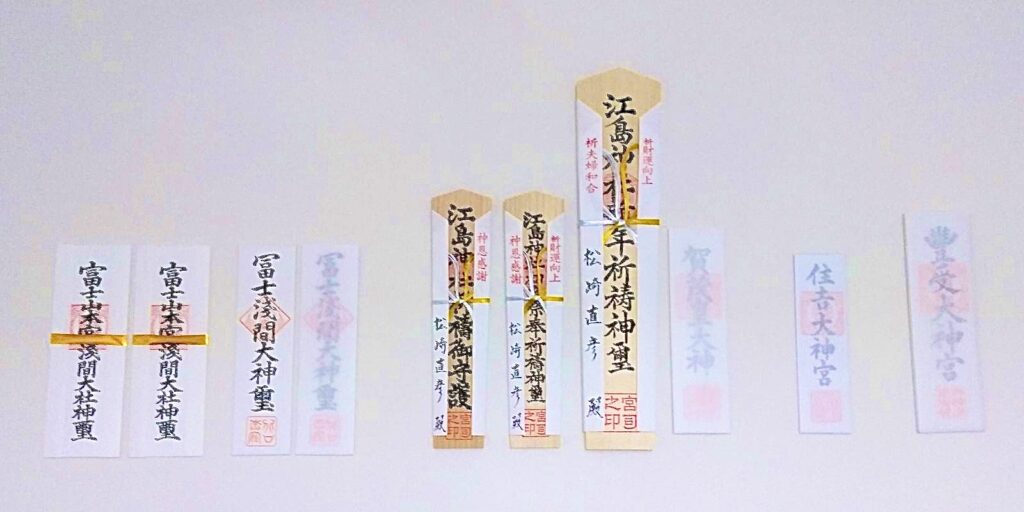 富士山本宮浅間大社神璽
富士山本宮浅間大社神璽
冨士浅間大神璽
冨士浅間大神璽
江島神
神恩感謝
祷御守護
松崎直彦殿
宮司之印
江島神
祈財運向上
神恩感謝
祭奉祈祷神璽
松崎直彦殿
宮司之印
江島神社
祈財運向上
祈夫婦和合
年祈祷神璽
松崎直彦
殿
宮司之印
賀茂皇大神
住吉大神宮
豊受大神宮